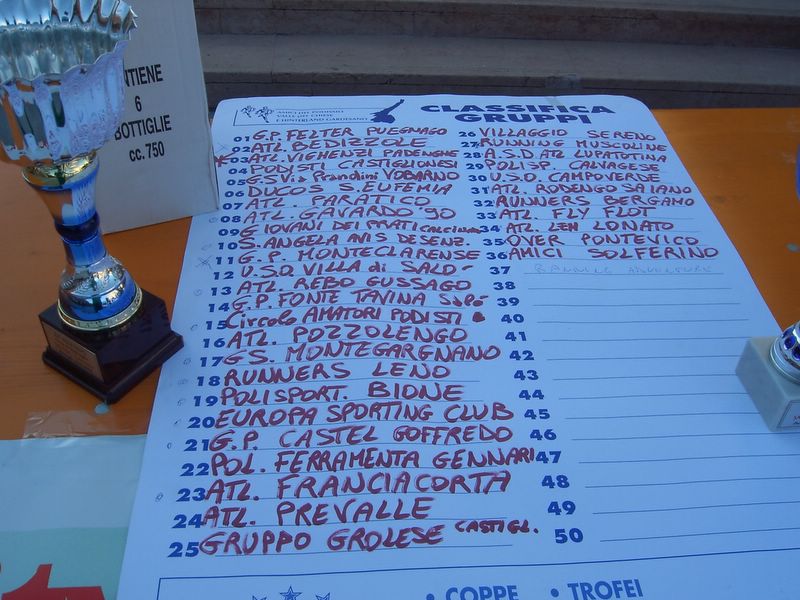 NTIENE
6
BOTTIGLIE
cc. 750
AMICI DEL PODISMO
VALLE DEL CHIESE
E HINTERLAND GARDESANO
CLASSIFICA
GRUPPI
01 G.P. FELTER PUEGNAGO
02 ATL. BEDIZZOLE
03 ATL. VIGHENZI PADENGHE
04 PODISTI CASTIGLIONESI
05 G.S. Vis Prandini VOBARNO
06 DUCOS S. EUFEMIA
07 ATL. PARATICO
08 ATL. GAVARDO '90
09 GIOVANI DEI PRATI CALCINATO
10 S. ANGELA AVIS DESENZ.
11 G.P. MONTECLARENSE
12 U.S.O. VILLA di SALO'
13 ATL. REBO GUSSAGO
14 G.P. FONTE TAVINA SALO'
15 Circolo AMATORI PODISTI
16 ATL. POZZOLENGO
17 GS. MONTEGARGNANO
18 RUNNERS LENO
19 POLISPORT. BIONE
20 EUROPA SPORTING CLUB
21 G.P. CASTEL GOFFREDO
22 POL. FERRAMENTA GENNARI
23 ATL. FRANCIACORTA
24 ATL. PREVALLE
25 GRUPPO GROLESE CASTIGL.
26 VILLAGGIO SERENO
27 RUNNING MUSCOLINE
28 A.S.D ATL LUPATOTINA
29 POLISP. CALVAGESE
30 U.S.O. CAMPOVERDE
31 ATL. RODENGO SAIANO
32 RUNNERS BERGAMO
33 ATL. FLY FLOT
34 ATL. LEN LONATO
35 OVER PONTEVICO
36 AMICI SOLFERINO
37
38
39
40
41
42
43
44
45
46
47
48
49
50
• COPPE • TROFEI